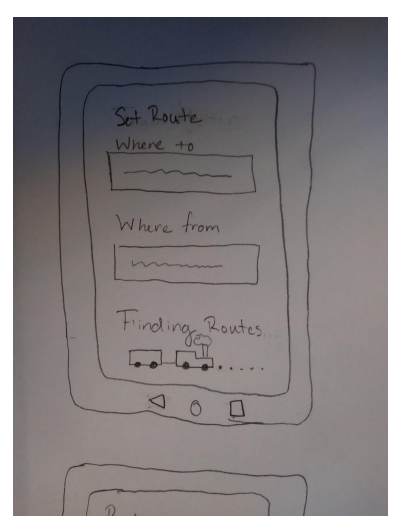 Set Route
Where to
Where from
Finding Routes...